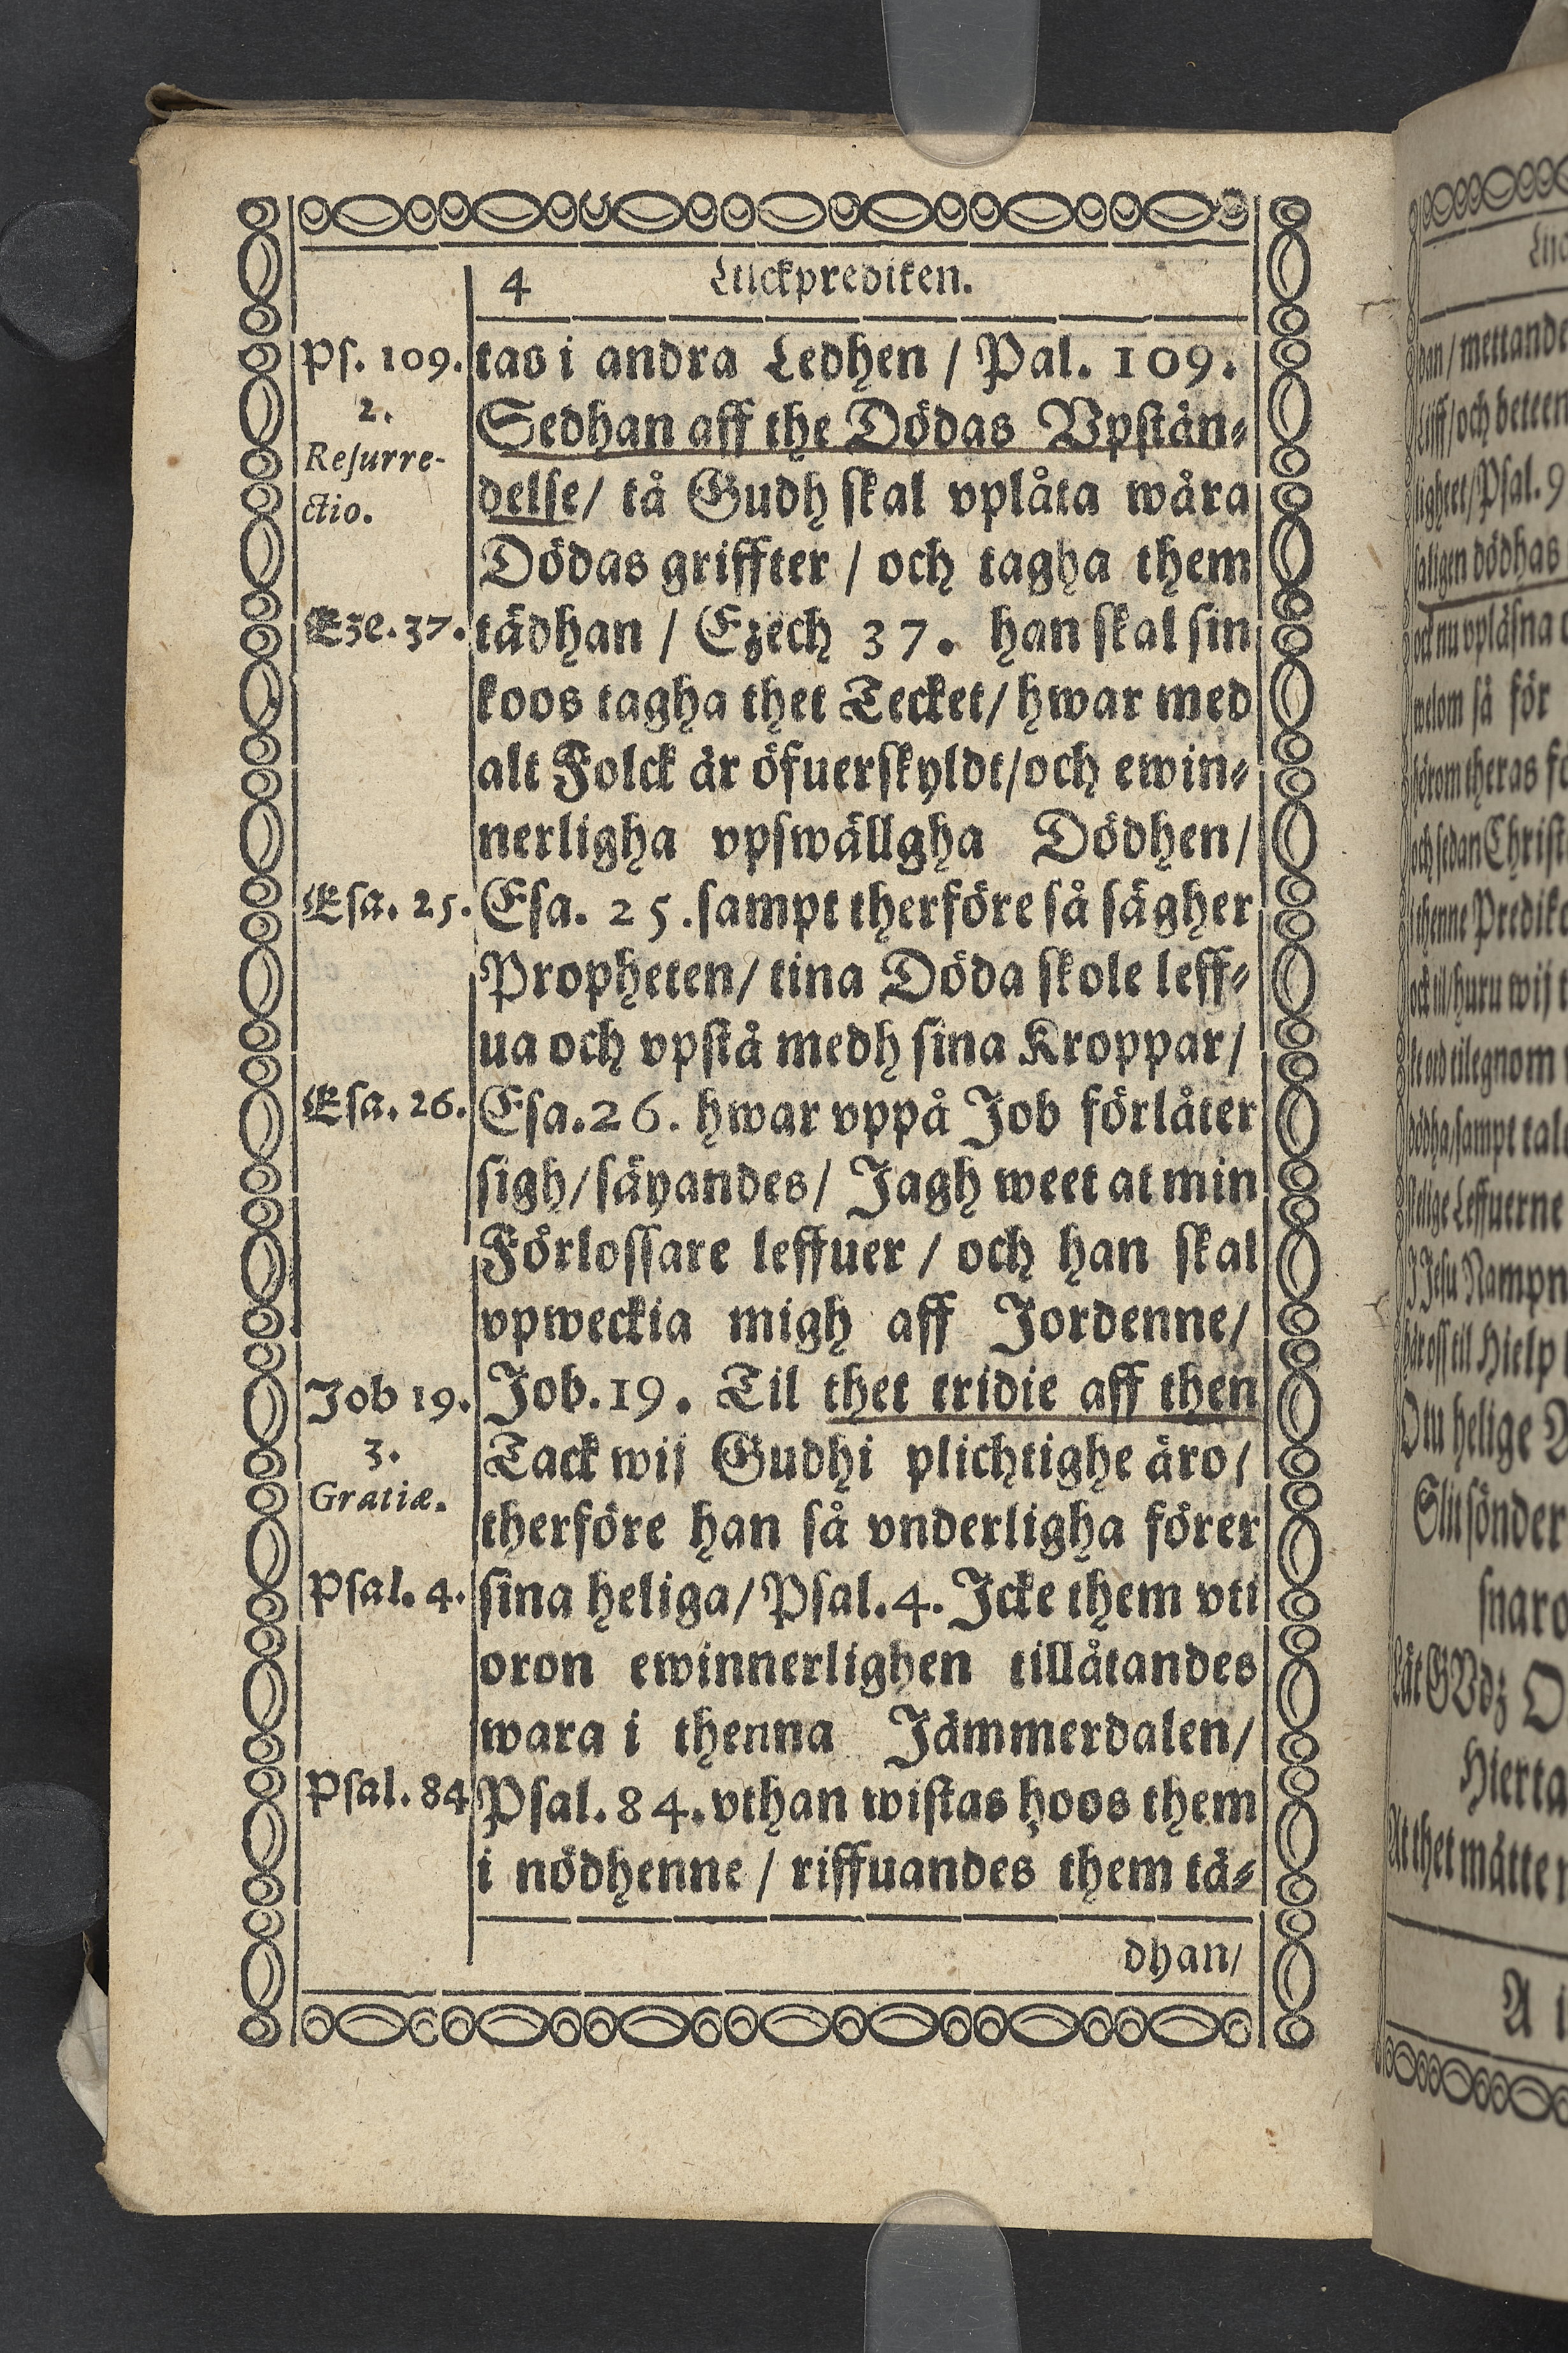 4 Lijckprediken.
Ps. 109.
2.
Resurre-
ctio.
Eze. 37.
Esa. 25.
Esa. 26.
Job 19.
3.
Gratiæ.
Psal. 4.
Psal. 84
tas i andra Ledhen / Pal. 109.
Sedhan aff the Dödas Vpstån-
delse / tå Gudh skal vplåta wåra
Dödas griffter / och tagha them
tädhan / Ezech 37. han skal sin
koos tagha thet Tecket / hwar med
alt Folck är öfuerskyldt / och ewin-
nerligha vpswällgha Dödhen /
Esa. 25. sampt therföre så sägher
Propheten / tina Döda skole leff-
ua och vpstå medh sina Kroppar /
Esa. 26. hwar vppå Job förlåter
sigh / säyandes / Jagh weet at min
Förlossare leffuer / och han skal
vpweckia migh aff Jordenne /
Job. 19. Til thet tridie aff then
Tack wij Gudhi plichtighe äro /
therföre han så vnderligha förer
sina heliga / Psal. 4. Icke them vti
oron ewinnerlighen tillåtandes
wara i thenna Jämmerdalen /
Psal. 84. vthan wistas hoos them
i nödhenne / riffuandes them tä-
dhan /
dan / mettande
Liff / och beteen
lighet / Psal. 9
saligen dödhas
och nu vpläsna
welom så för
hörom theras
och sedan Christ
thenne Predik
ock til / huru wij
tilegnom
dödha / sampt tal
Leffuerne
J Jesu Nampn
här oss til Hielp
O tu helige
Slit sönder
snaro
Låt GUdz O
Hierta
At thet måtte
A